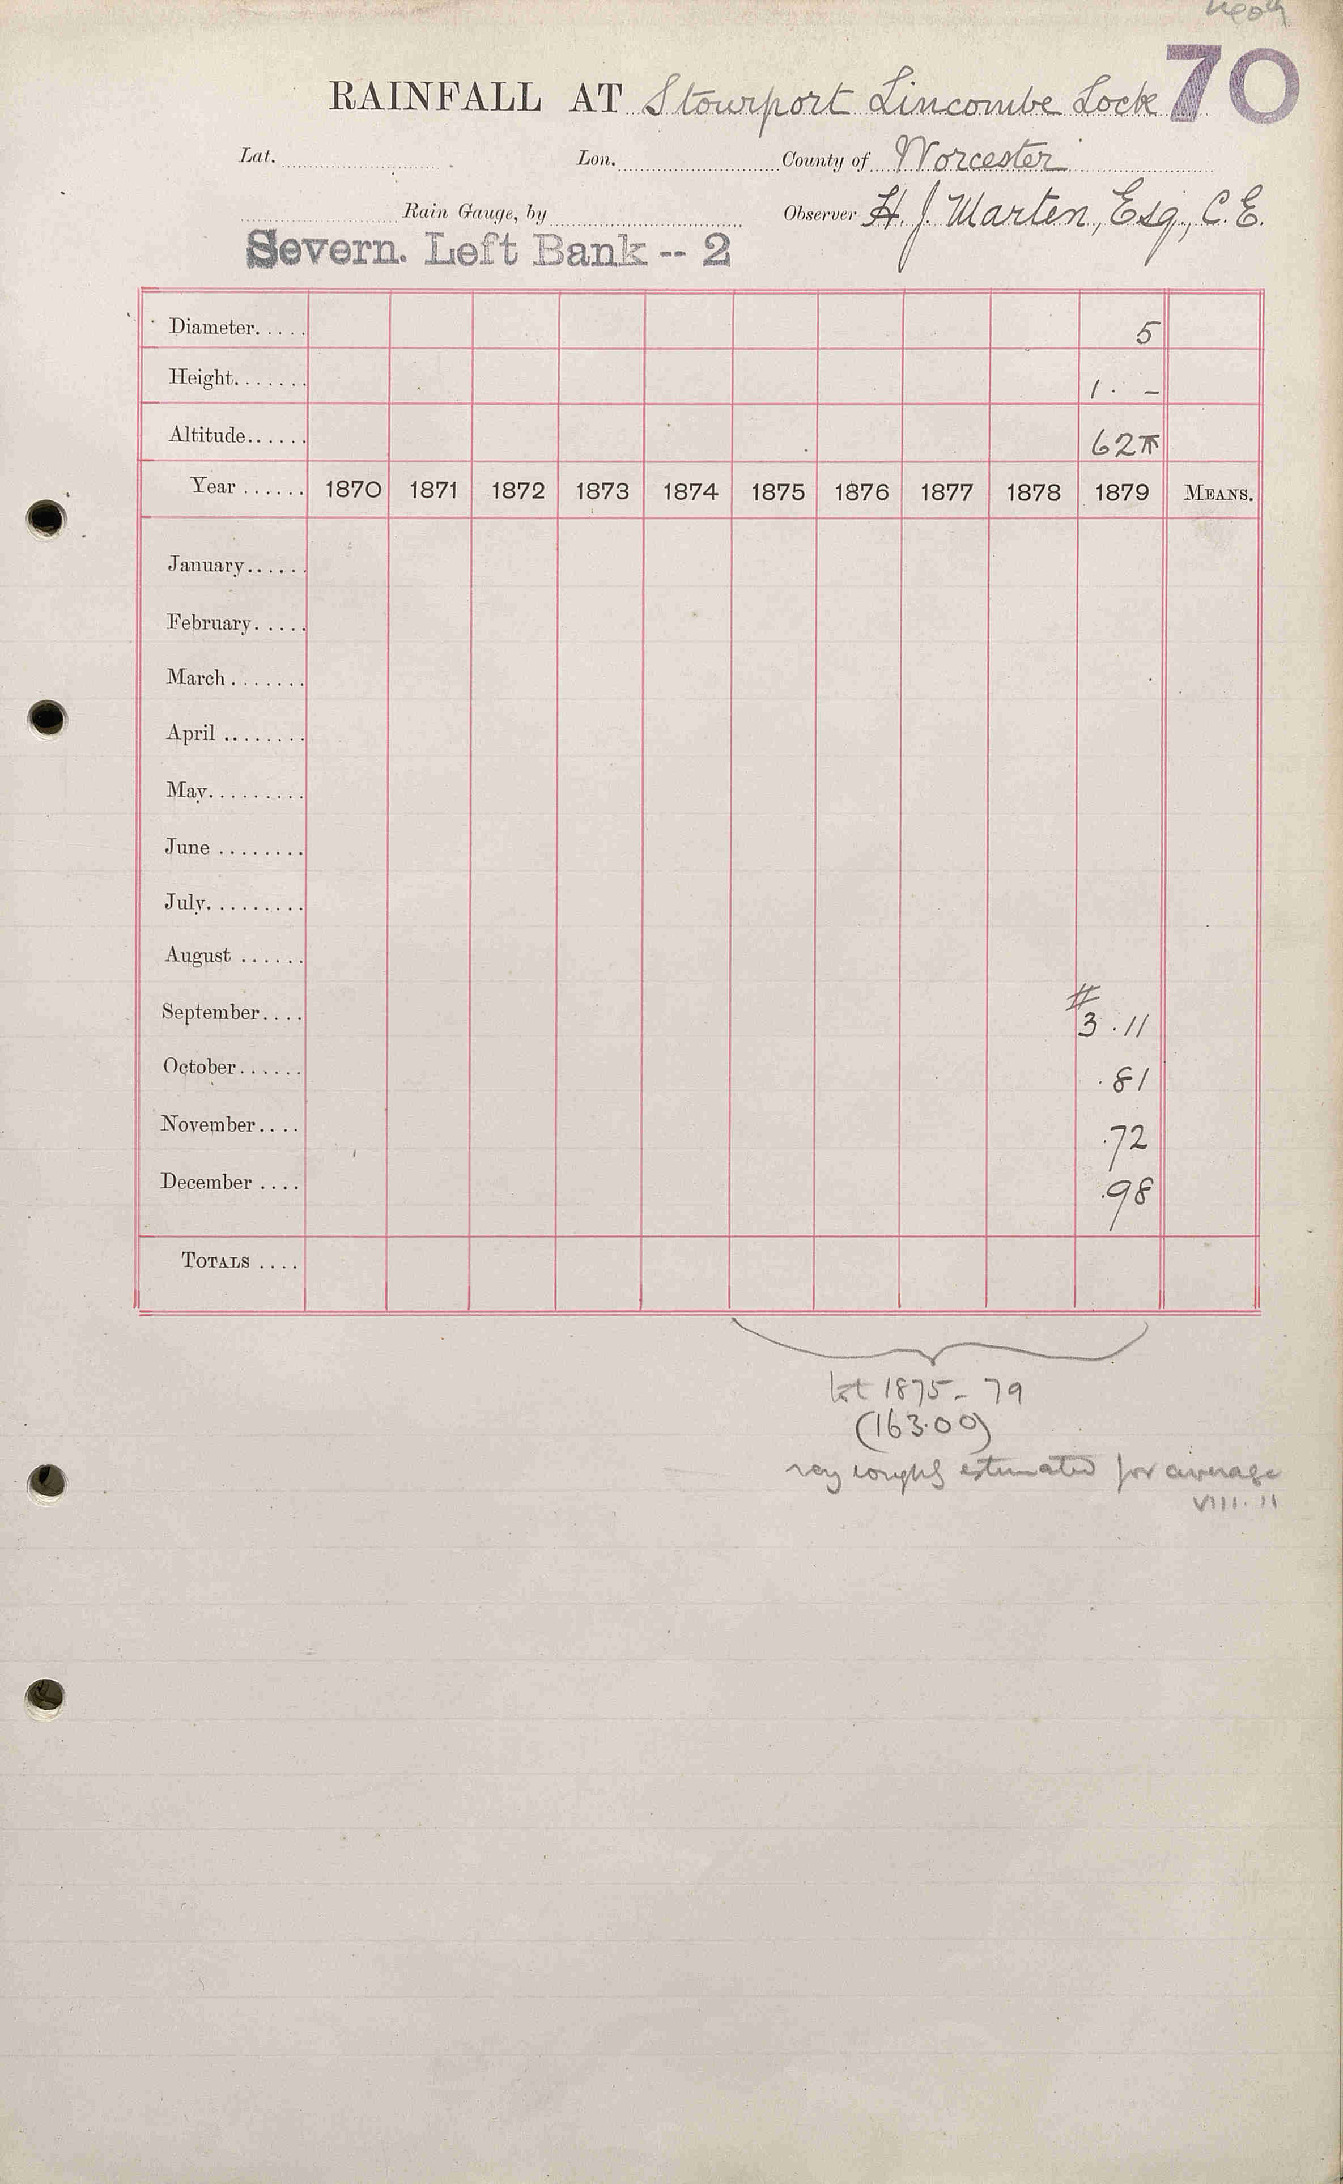 70
RAINFALL AT Stourport Lincombe Lock
Lat. Lon. County of Worcester
Rain Gauge, by Observer H. J. Marten, Esq., C.E.
Severn. Left Bank -- 2
Diameter..... 5
Height....... 1. -
Altitude...... 62
Year ...... 1870 1871 1872 1873 1874 1875 1876 1877 1878 1879 MEANS.
January......
February.....
March.......
April ........
May.........
June ........
July.........
August ......
September.... # 3.11
October...... .81
November.... .72
December .... .98
TOTALS ....
tot 1875-79
(163.00)
very roughly estimated for average
VIII. 11